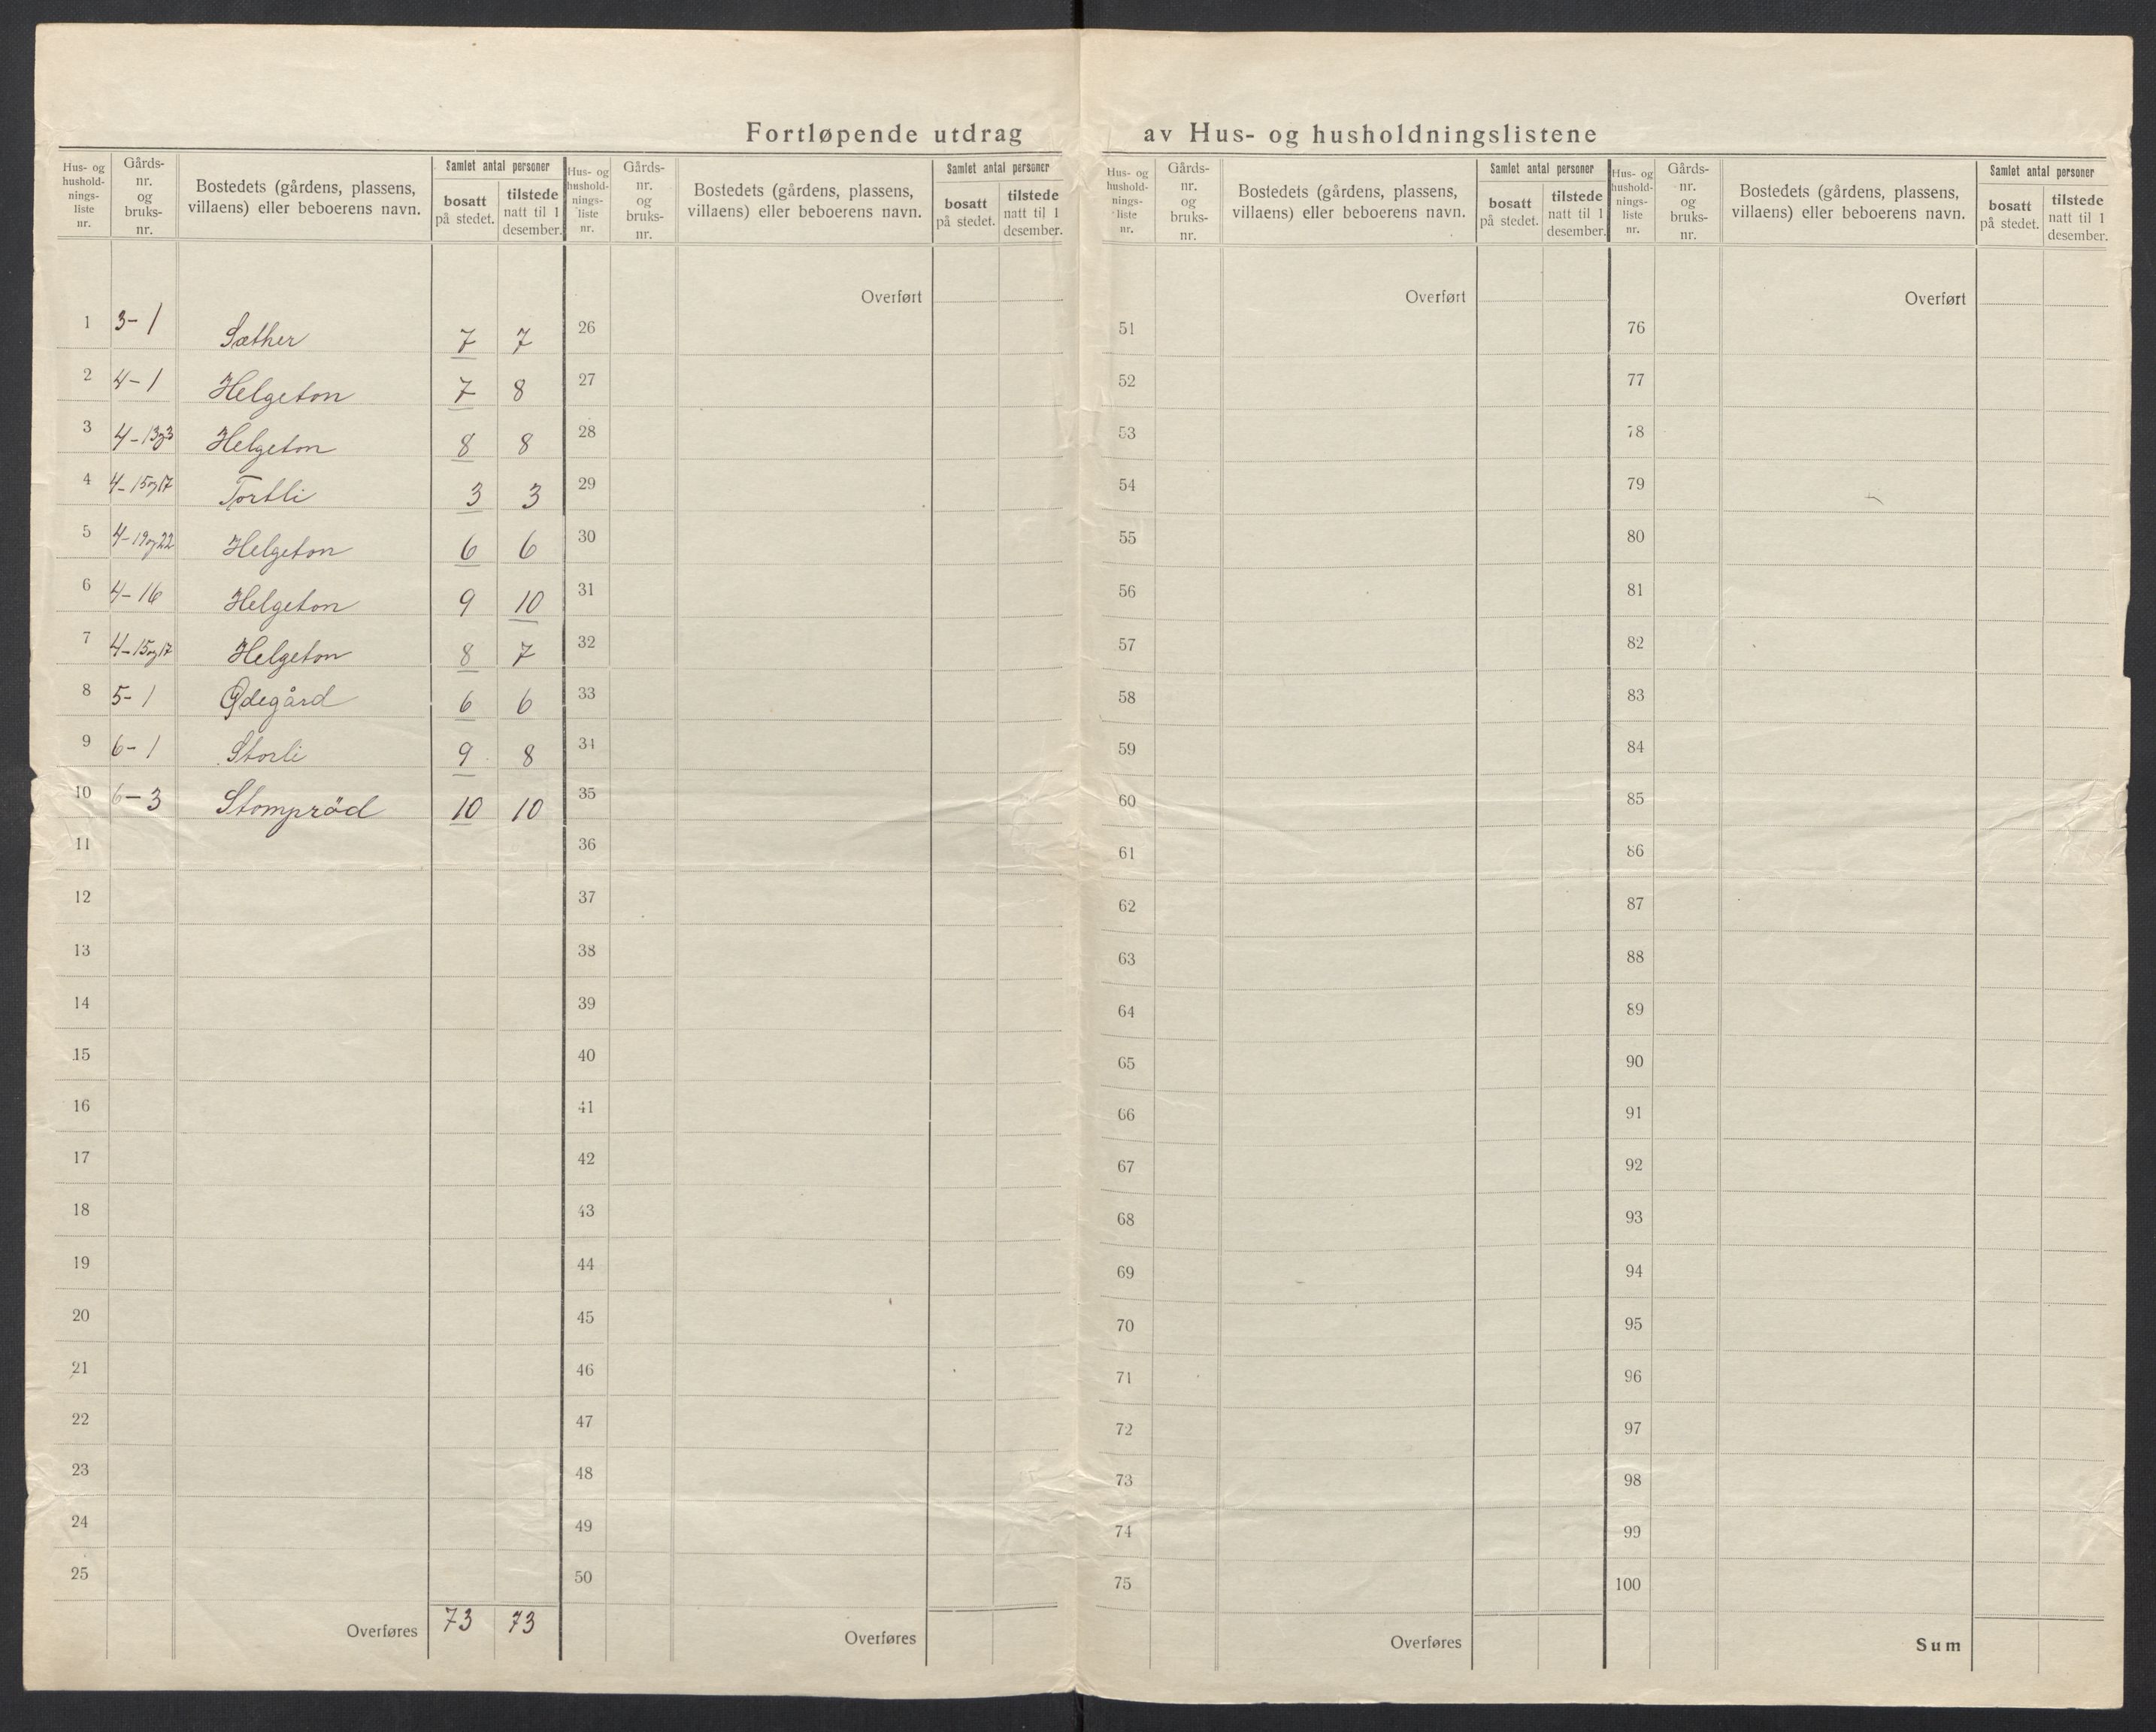 Fortløpende utdrag av Hus- og husholdningslistene
Hus- og hushold-nings-liste nr. Gårds-nr. og bruks-nr. Bostedets (gårdens, plassens, villaens) eller beboerens navn. Samlet antal personer bosatt på stedet. tilstede natt til 1 desember.
Hus- og hushold-nings-liste nr. Gårds-nr. og bruks-nr. Bostedets (gårdens, plassens, villaens) eller beboerens navn. Samlet antal personer bosatt på stedet. tilstede natt til 1 desember.
Hus- og hushold-nings-liste nr. Gårds-nr. og bruks-nr. Bostedets (gårdens, plassens, villaens) eller beboerens navn. Samlet antal personer bosatt på stedet. tilstede natt til 1 desember.
Hus- og hushold-nings-liste nr. Gårds-nr. og bruks-nr. Bostedets (gårdens, plassens, villaens) eller beboerens navn. Samlet antal personer bosatt på stedet. tilstede natt til 1 desember.
Overført Overført Overført
1 3-1 Sæther 7 7 26 51 76
2 4-1 Helgeton 7 8 27 52 77
3 4-13og3 Helgeton 8 8 28 53 78
4 4-15og17 Tortli 3 3 29 54 79
5 4-19og22 Helgeton 6 6 30 55 80
6 4-16 Helgeton 9 10 31 56 81
7 4-15og17 Helgeton 8 7 32 57 82
8 5-1 Ødegård 6 6 33 58 83
9 6-1 Storli 9 8 34 59 84
10 6-3 Stomprød 10 10 35 60 85
11 36 61 86
12 37 62 87
13 38 63 88
14 39 64 89
15 40 65 90
16 41 66 91
17 42 67 92
18 43 68 93
19 44 69 94
20 45 70 95
21 46 71 96
22 47 72 97
23 48 73 98
24 49 74 99
25 50 75 100
Overføres 73 73 Overføres Overføres Sum